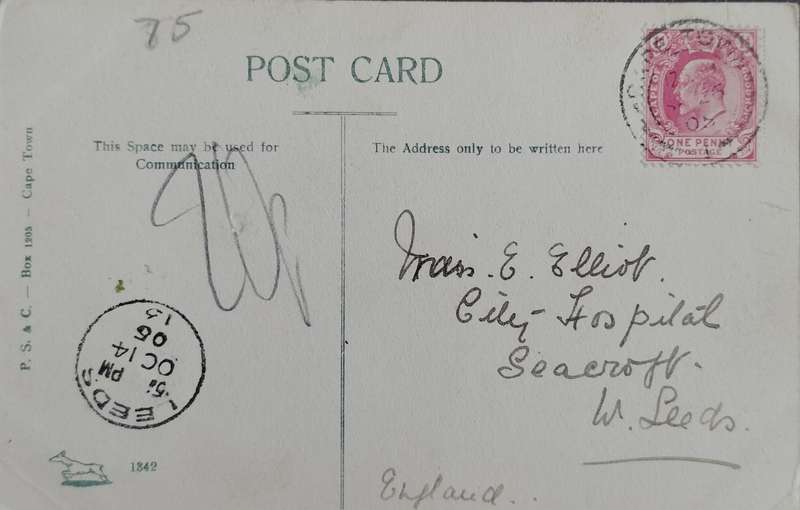 75
POST CARD
This Space may be used for
Communication
The Address only to be written here
P. S. & C. — Box 1205 — Cape Town
CAPE TOWN
ONE PENNY
POSTAGE
Miss. E. Elliot.
City Hospital
Seacroft.
W. Leeds.
England..
LEEDS
PM
OC 14
05
15
1342